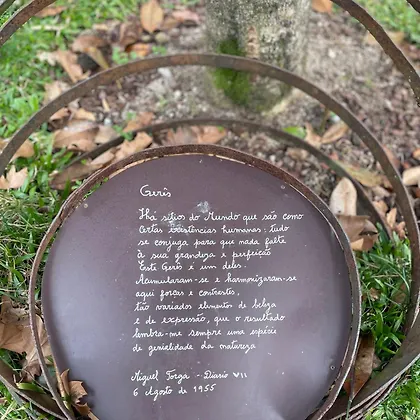 Gerês
Há sítios do Mundo que são como
certas existências humanas: tudo
se conjuga para que nada falte
à sua grandeza e perfeição.
Este Gerês é um deles.
Acumularam-se e harmonizaram-se
aqui forças e contrastes,
tão variados elementos de beleza
e de expressão, que o resultado
lembra-me sempre uma espécie
de genialidade da natureza
Miguel Torga - Diario VII
6 Agosto de 1955